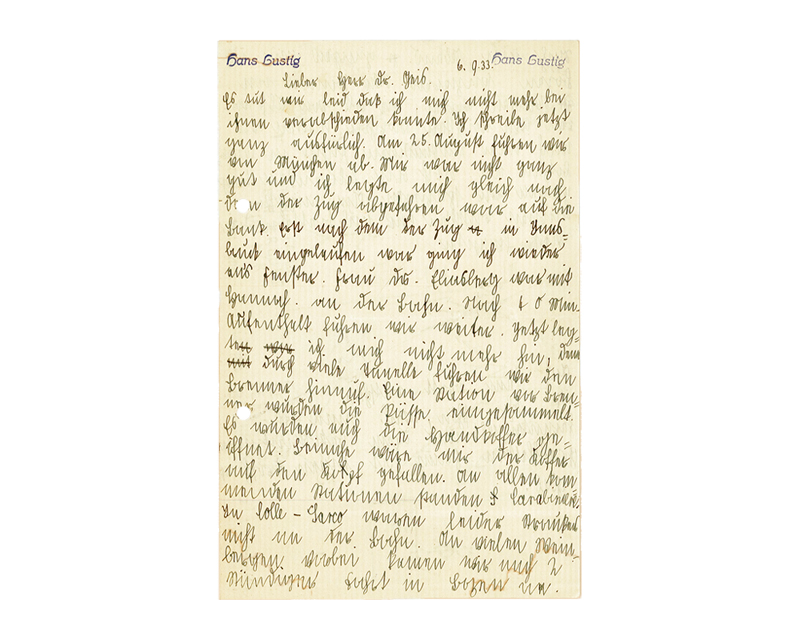 Hans Lustig 6. 9. 33. Hans Lustig
Lieber Herr Dr. Geis.
Es tut mir leid daß ich mich nicht mehr bei
ihnen verabschieden konnte. Ich schreibe jetzt
ganz ausfürlich. Am 25. August fuhren wir
von München ab. Mir war nicht ganz
gut und ich legte mich gleich nach
dem der Zug abgefahren war auf die
Bank. Erst nach dem der Zug in Inns=
bruck eingelaufen war ging ich wieder
ans Fenster. Frau Dr. Eliasberg war mit
Hannah. an der Bahn. Nach 10 Min.
Aufenthalt fuhren wir weiter. Jetzt leg=
te ich mich nicht mehr hin, denn
durch viele Tunelle fuhren wir den
Brenner hinauf. Eine Station vor Bren=
ner wurden die Pässe eingesammelt.
Es wurden auch die Handkoffer ge=
öffnet. Beinahe wäre mir der Koffer
auf den Kopf gefallen. An allen kom
menden Stationen standen Carabinieri.
In Colle - Isarco waren leider
nicht an der Bahn. An vielen Wein=
bergen vorbei kamen wir nach 2
stündiger Fahrt in Bozen an.